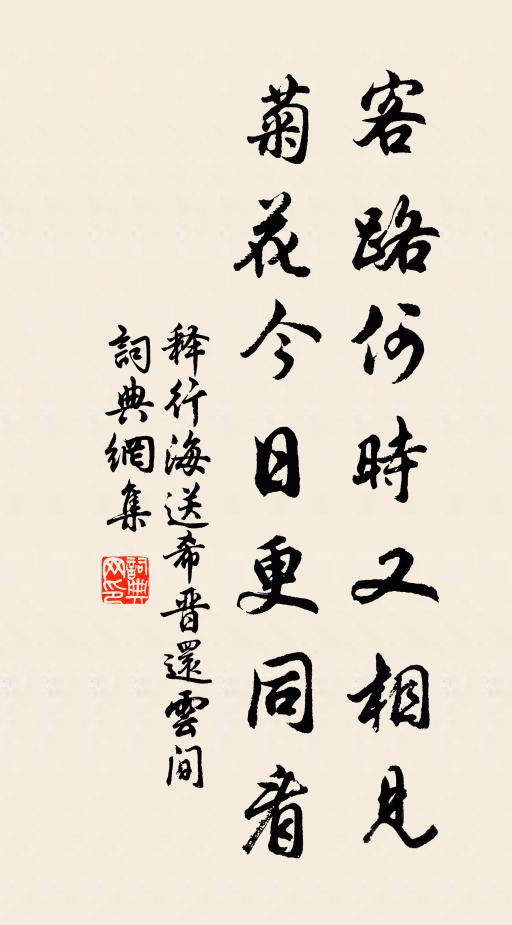 客路何時又相見
菊花今日更同看
释行海送希晋還雲间
詞典網集
詞典网印